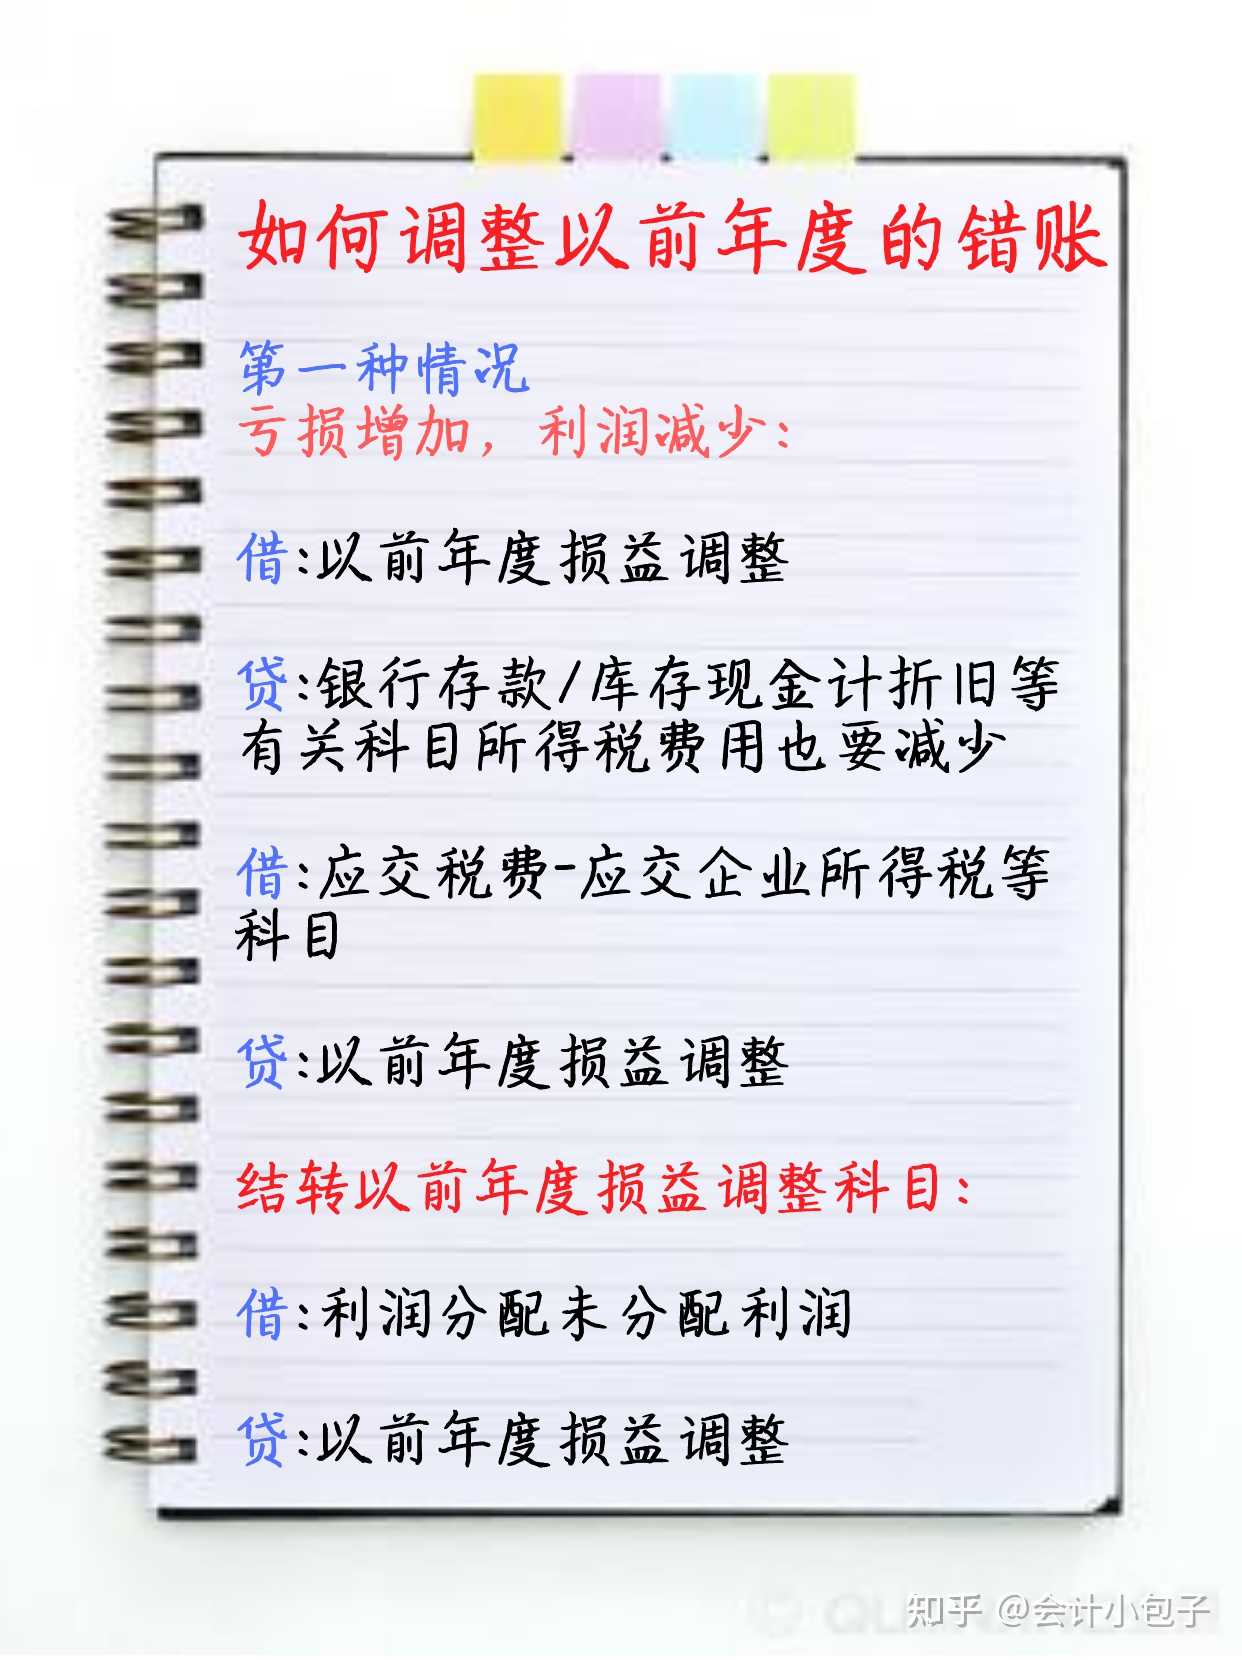 如何调整以前年度的错账
第一种情况
亏损增加，利润减少：
借:以前年度损益调整
贷:银行存款/库存现金计折旧等
有关科目所得税费用也要减少
借:应交税费-应交企业所得税等
科目
贷:以前年度损益调整
结转以前年度损益调整科目：
借:利润分配未分配利润
贷:以前年度损益调整
知乎 @会计小包子